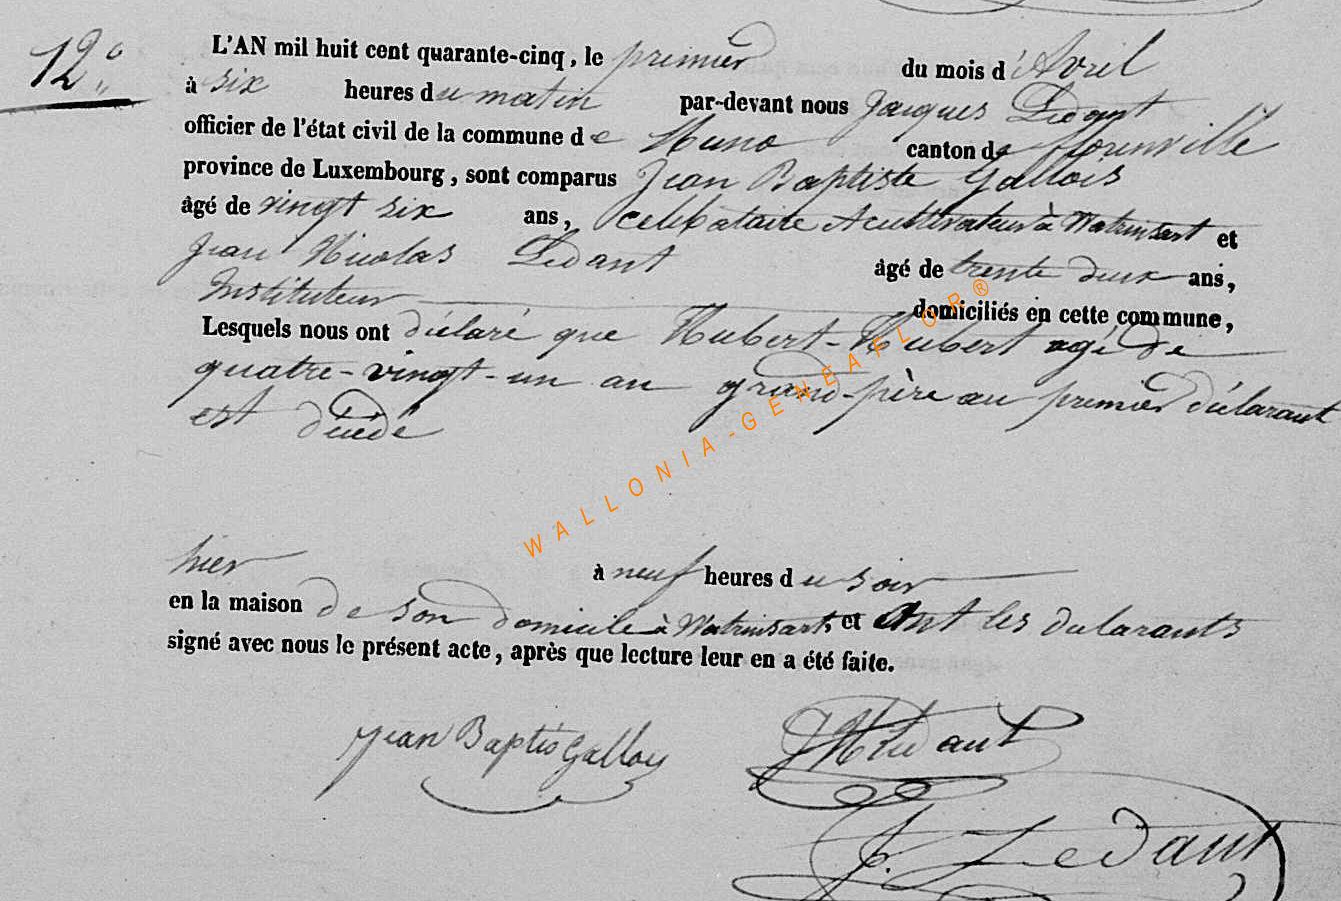 12°
L'AN mil huit cent quarante-cinq, le premier du mois d'Avril
à six heures du matin par-devant nous Jacques Ledant
officier de l'état civil de la commune de Muno canton de florenville
province de Luxembourg, sont comparus Jean Baptiste Gallois
âgé de vingt six ans, celibataire cultivateur à Watrinsart et
Jean Nicolas Ledant âgé de trente deux ans,
Instituteur domiciliés en cette commune,
Lesquels nous ont déclaré que Hubert-Hubert agé de
quatre-vingt-un an grand-père au premier déclarant
est décédé
hier à neuf heures du soir
en la maison de son domicile à Watrinsart, et ont les declarants
signé avec nous le présent acte, après que lecture leur en a été faite.
Jean Baptis Galloy
JNLedant
J. Ledant
WALLONIA-GENEAFLOR®